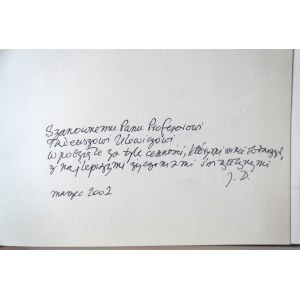 Szanownemu Panu Profesorowi
Tadeuszowi Ulewiczowi
w podzięce za tyle cenności, którymi mnie obdarzył,
z najlepszymi życzeniami imieninowymi
J. D.
marzec 2002